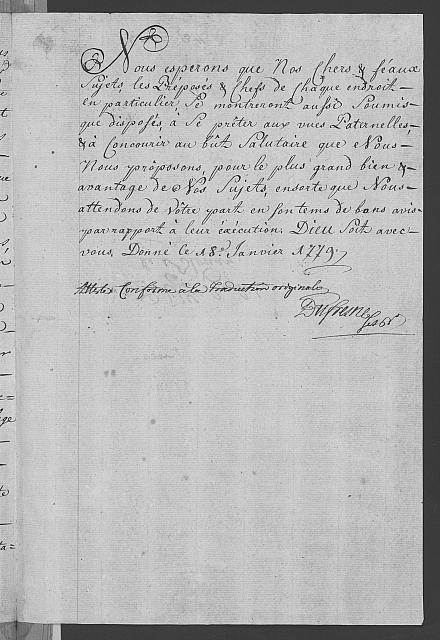 Nous esperons que Nos Chers & féaux
Sujets, les Préposés & Chefs de Chaque endroit
en particulier, Se montreront aussi Soumis
que disposés, à Se prêter aux vues Paternelles,
& à Concourir au bût Salutaire que Nous
Nous proposons, pour le plus grand bien &
avantage de Nos Sujets, ensorte que Nous
attendons de Vôtre part en son tems de bons avis
par rapport à leur éxécution; Dieu Soit avec
vous, Donné le 18e. Janvier 1779.
Attesté Conforme à la Traduction originale
Dufresne
ge
te
ta=